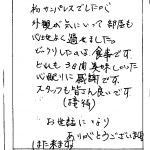 和サンパレスでしたが
外観が気にいって部屋も
心地よく過せました。
ビックリしたのは、食事です
どれも30回美味しかった
心配りに感謝です
スタッフも皆さん良いです
(接待)
お世話になり
ありがとうございます
(また来ます)